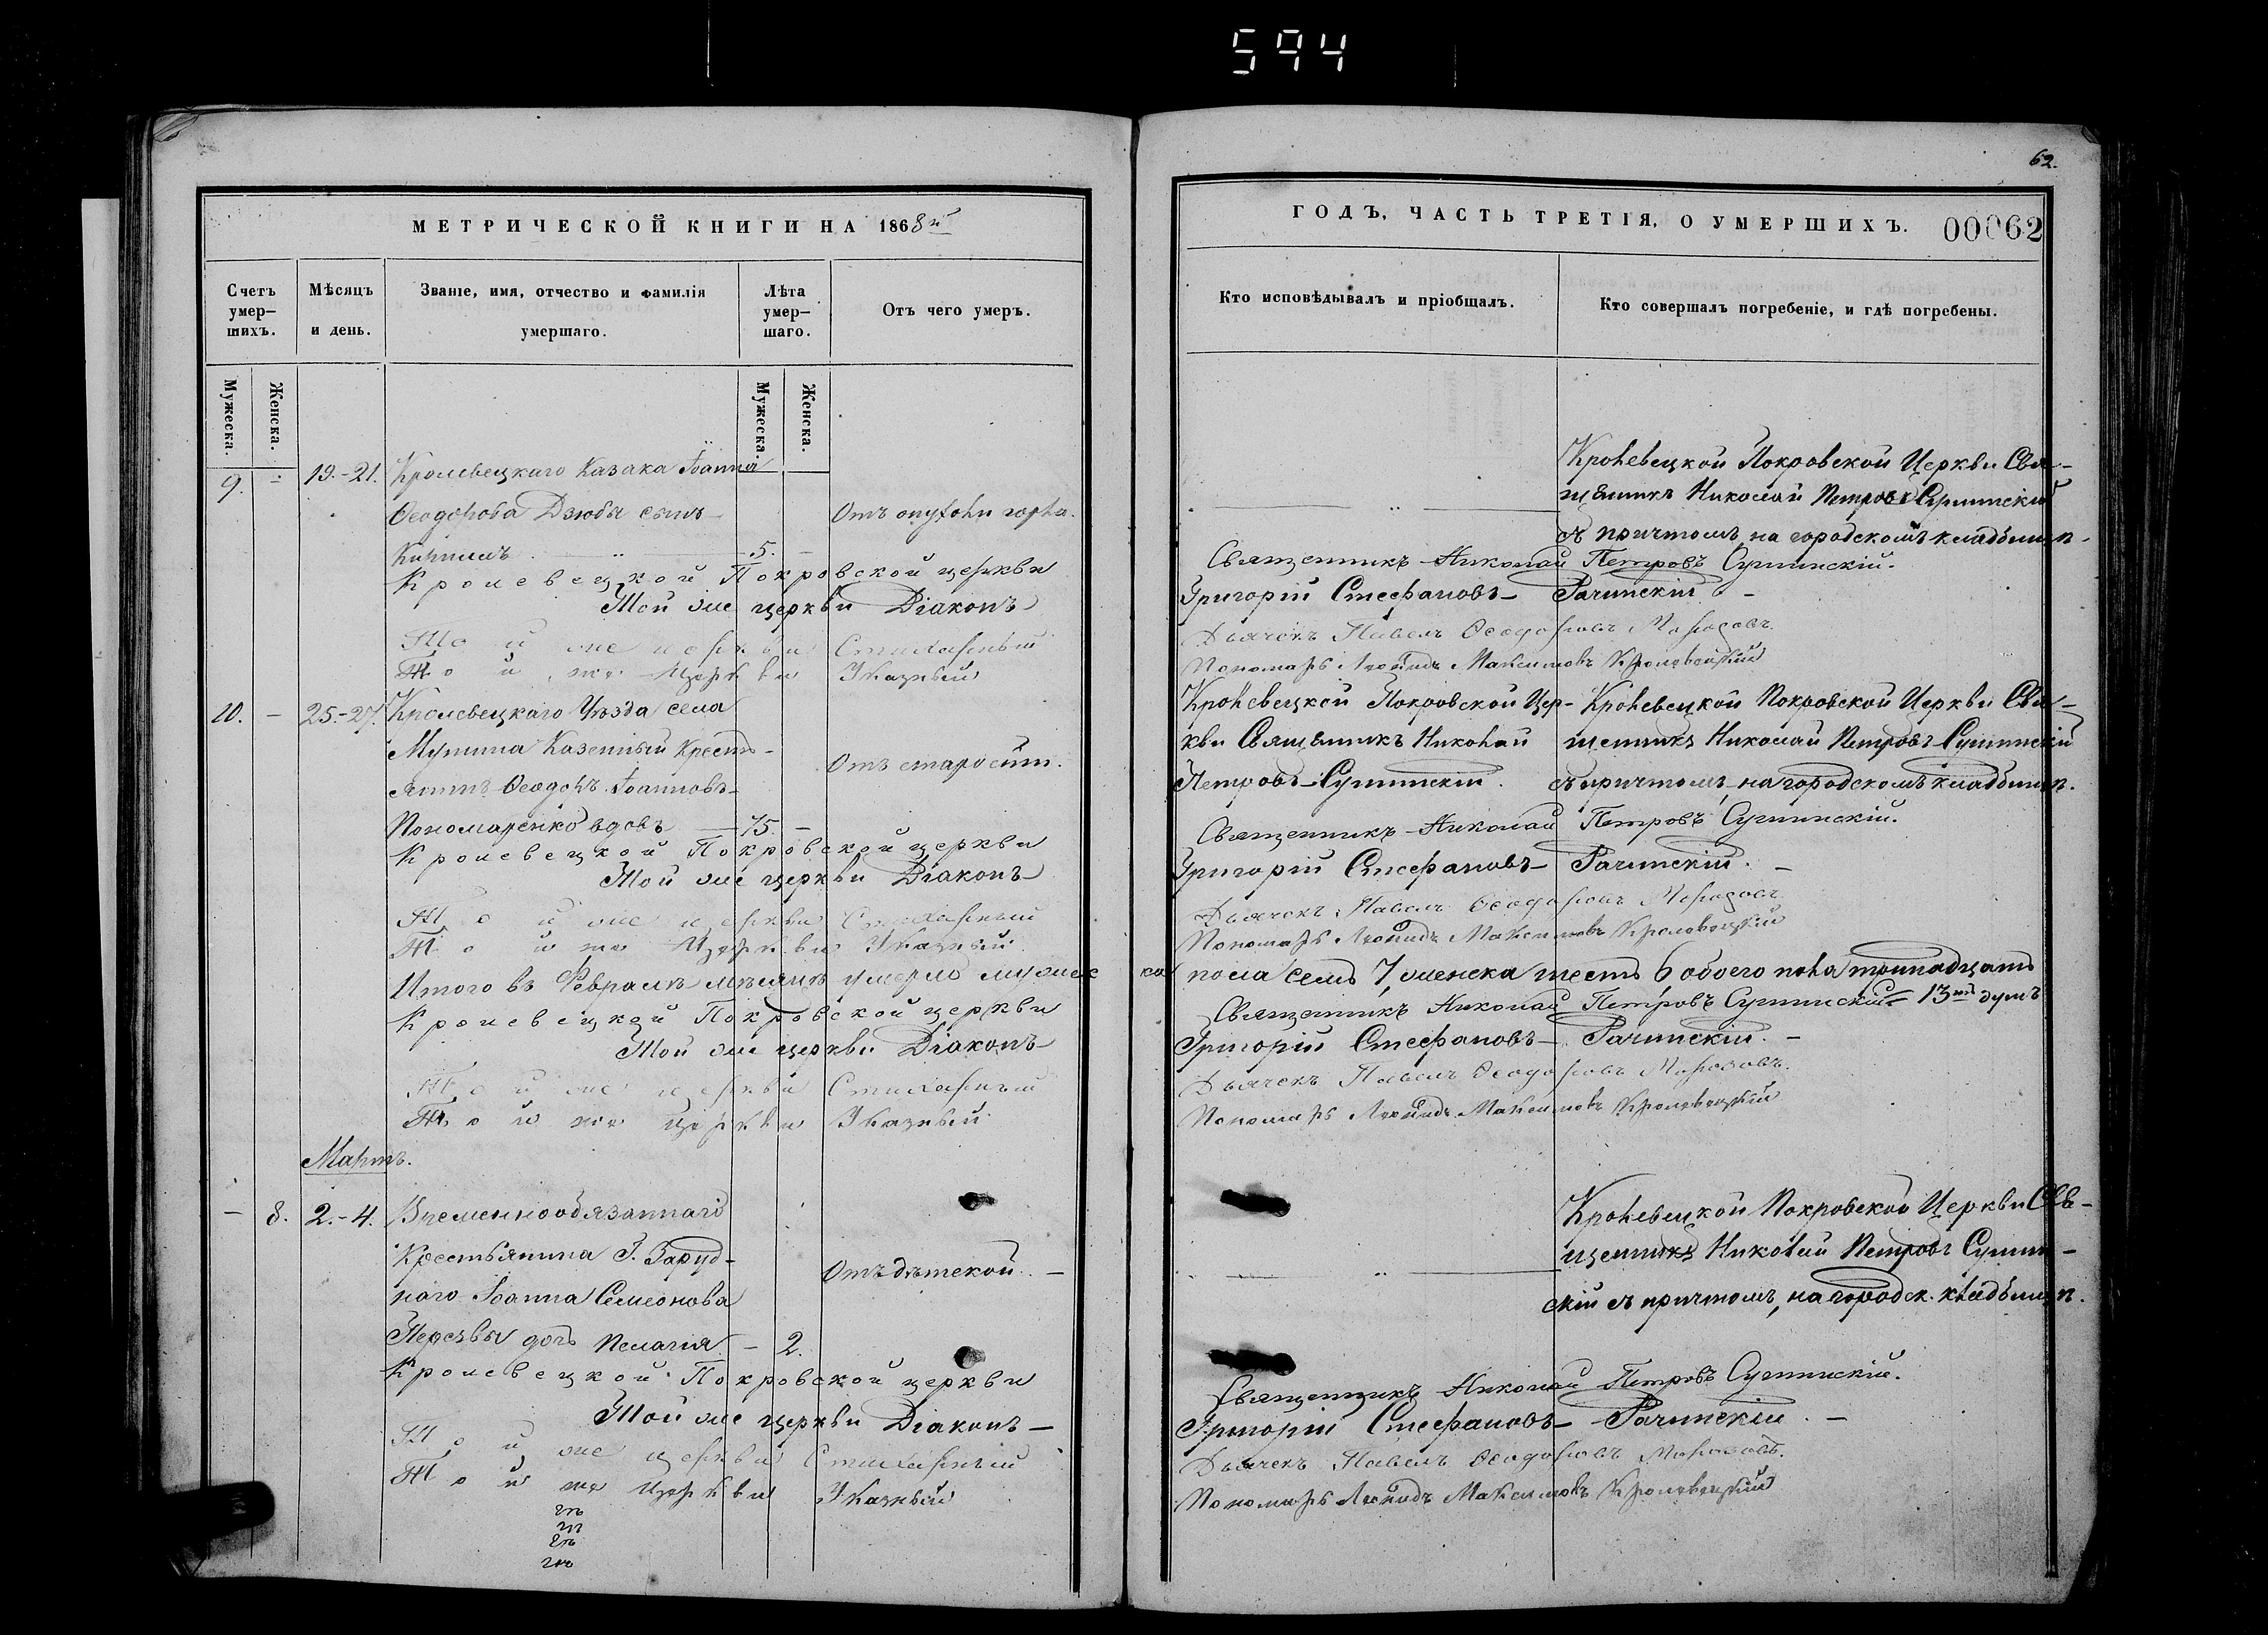 594
МЕТРИЧЕСКОЙ КНИГИ НА 1868й
Счетъ умер-шихъ.
Мѣсяцъ и день.
Званіе, имя, отчество и фамилія умершаго.
Лѣта умер-шаго.
Отъ чего умеръ.
Мужеска.
Женска.
Мужеска.
Женска.
9. - 19.-21. Кролевецкаго Казака Іоанна
Ѳеодорова Дзюбы сынъ
Отъ опухоли горла.
Кириллъ 5. -
Кролевецкой Покровской церкви
Той же церкви Діаконъ
Той же церкви Стихарный
Той же Церкви Указный
10. - 25.-27. Кролевецкаго Уѣзда села
Мутина Казенный Крестъ-
янинъ Ѳеодоръ Іоанновъ
Отъ старости.
Пономаренко вдовъ 75. -
Кролевецкой Покровской церкви
Той же церкви Діаконъ
Той же церкви Стихарный
Той же Церкви Указный
Итого въ Февралѣ мѣсяцѣ умерло мужеск
Кролевецкой Покровской церкви
Той же церкви Діаконъ
Той же церкви Стихарный
Той же церкви Указный
Мартъ.
- 8. 2.-4. Временнообязаннаго
Крестьянина Г. Заруд-
наго Іоанна Семеонова
Отъ дѣтской.
дочь Пелагія - 2.
Кролевецкой Покровской церкви
Той же церкви Діаконъ
Той же церкви Стихарный
Той же Церкви Указный
62.
ГОДЪ, ЧАСТЬ ТРЕТІЯ, О УМЕРШИХЪ. 00062
Кто исповѣдывалъ и пріобщалъ.
Кто совершалъ погребеніе, и гдѣ погребены.
Кролевецкой Покровской Церкви Свя-
щенникъ Николай Петровъ Сулимскій
съ причтомъ, на городскомъ кладбищѣ.
Священникъ Николай Петровъ Сулимскій.
Григорій Стефановъ Рачинскій
Дьячекъ Павелъ Ѳеодоровъ Морозовъ
Пономарь Леонидъ Максимовъ Кролевецкій
Кролевецкой Покровской Цер-
кви Священникъ Николай
Петровъ Сулимскій.
Кролевецкой Покровской Церкви Свя-
щенникъ Николай Петровъ Сулимскій
съ причтомъ, на городскомъ кладбищѣ.
Священникъ Николай Петровъ Сулимскій.
Григорій Стефановъ Рачинскій.
Дьячекъ Павелъ Ѳеодоровъ Морозовъ
Пономарь Леонидъ Максимовъ Кролевецкій
ка пола семь 7, женска шесть 6 обоего пола тринадцать
Священникъ Николай Петровъ Сулимскій 13ть душъ
Григорій Стефановъ Рачинскій.
Дьячекъ Павелъ Ѳеодоровъ Морозовъ.
Пономарь Леонидъ Максимовъ Кролевецкій
Кролевецкой Покровской Церкви Свя-
щенникъ Николай Петровъ Сулим-
скій съ причтомъ, на городск. кладбищѣ.
Священникъ Николай Петровъ Сулимскій.
Григорій Стефановъ Рачинскій.
Дьячекъ Павелъ Ѳеодоровъ Морозовъ.
Пономарь Леонидъ Максимовъ Кролевецкій